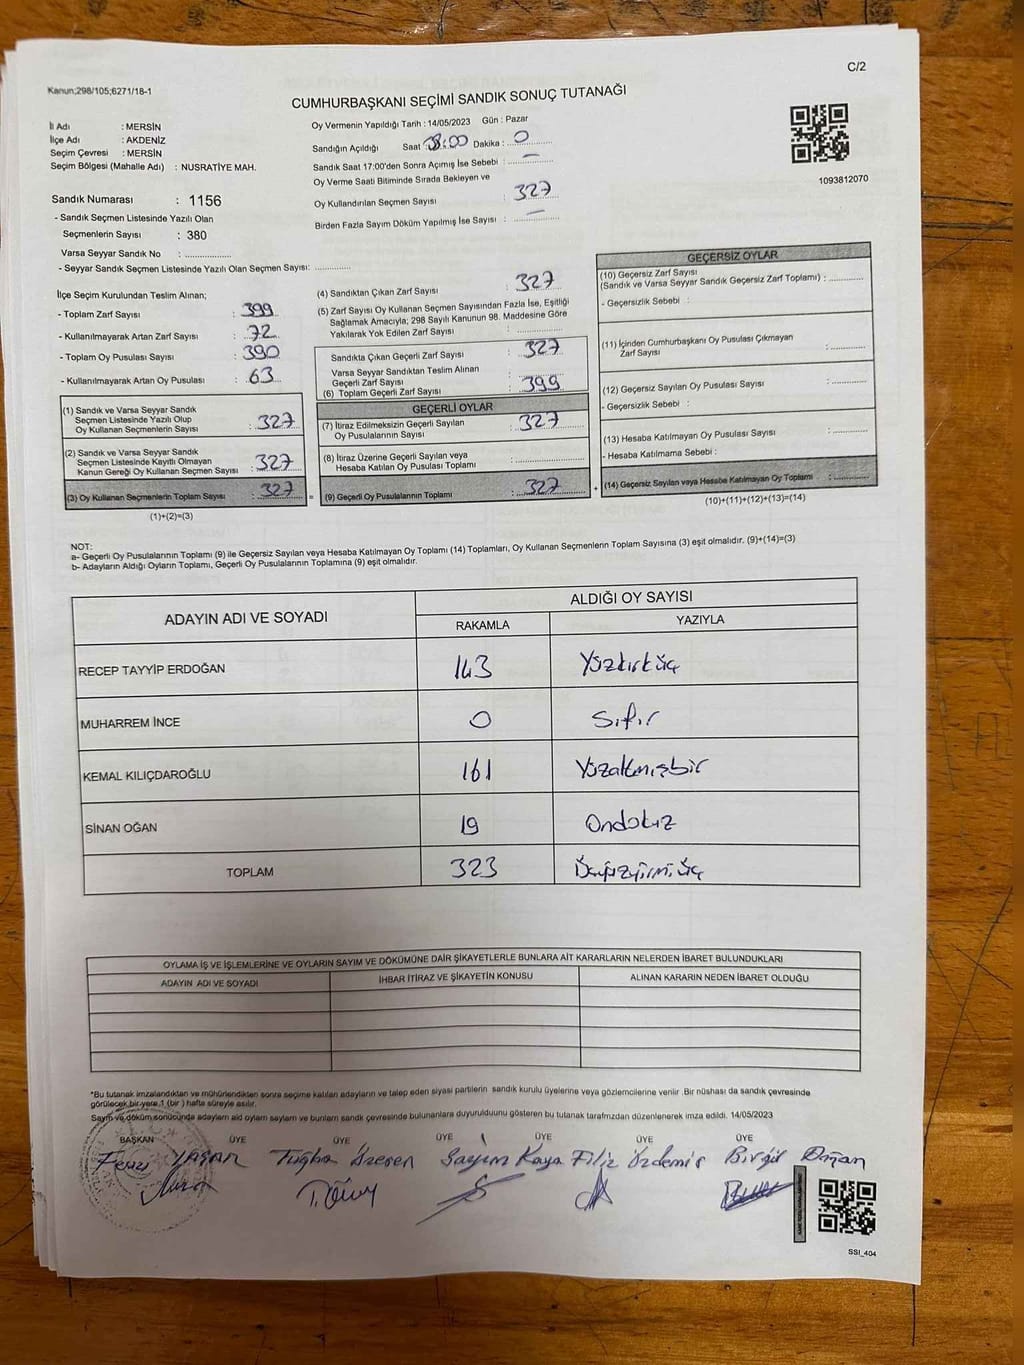 C/2
Kanun;298/105;6271/18-1
CUMHURBAŞKANI SEÇİMİ SANDIK SONUÇ TUTANAĞI
İl Adı : MERSİN
İlçe Adı : AKDENİZ
Seçim Çevresi : MERSİN
Seçim Bölgesi (Mahalle Adı) : NUSRATİYE MAH.
Oy Vermenin Yapıldığı Tarih : 14/05/2023 Gün : Pazar
Sandığın Açıldığı Saat Dakika : 0
Sandık Saat 17:00'den Sonra Açımış İse Sebebi : —
Oy Verme Saati Bitiminde Sırada Bekleyen ve
Oy Kullandırılan Seçmen Sayısı : 327
Birden Fazla Sayım Döküm Yapılmış İse Sayısı : —
1093812070
Sandık Numarası : 1156
- Sandık Seçmen Listesinde Yazılı Olan
Seçmenlerin Sayısı : 380
Varsa Seyyar Sandık No : ..............
- Seyyar Sandık Seçmen Listesinde Yazılı Olan Seçmen Sayısı: ............
İlçe Seçim Kurulundan Teslim Alınan;
- Toplam Zarf Sayısı : 399
- Kullanılmayarak Artan Zarf Sayısı : 72
- Toplam Oy Pusulası Sayısı : 390
- Kullanılmayarak Artan Oy Pusulası : 63
(1) Sandık ve Varsa Seyyar Sandık
Seçmen Listesinde Yazılı Olup
Oy Kullanan Seçmenlerin Sayısı : 327
(2) Sandık ve Varsa Seyyar Sandık
Seçmen Listesinde Kayıtlı Olmayan
Kanun Gereği Oy Kullanan Seçmen Sayısı : 327
(3) Oy Kullanan Seçmenlerin Toplam Sayısı : 327 =
(1)+(2)=(3)
(4) Sandıktan Çıkan Zarf Sayısı : 327
(5) Zarf Sayısı Oy Kullanan Seçmen Sayısından Fazla İse, Eşitliği
Sağlamak Amacıyla; 298 Sayılı Kanunun 98. Maddesine Göre
Yakılarak Yok Edilen Zarf Sayısı : ..............
Sandıkta Çıkan Geçerli Zarf Sayısı : 327
Varsa Seyyar Sandıktan Teslim Alınan
Geçerli Zarf Sayısı :
(6) Toplam Geçerli Zarf Sayısı : 399
GEÇERLİ OYLAR
(7) İtiraz Edilmeksizin Geçerli Sayılan
Oy Pusulalarının Sayısı : 327
(8) İtiraz Üzerine Geçerli Sayılan veya
Hesaba Katılan Oy Pusulası Toplamı : ..............
(9) Geçerli Oy Pusulalarının Toplamı : 327 +
GEÇERSİZ OYLAR
(10) Geçersiz Zarf Sayısı
(Sandık ve Varsa Seyyar Sandık Geçersiz Zarf Toplamı) : ............
- Geçersizlik Sebebi :
(11) İçinden Cumhurbaşkanı Oy Pusulası Çıkmayan
Zarf Sayısı : ............
(12) Geçersiz Sayılan Oy Pusulası Sayısı : ............
- Geçersizlik Sebebi :
(13) Hesaba Katılmayan Oy Pusulası Sayısı : ............
- Hesaba Katılmama Sebebi :
(14) Geçersiz Sayılan veya Hesaba Katılmayan Oy Toplamı : ............
(10)+(11)+(12)+(13)=(14)
NOT:
a- Geçerli Oy Pusulalarının Toplamı (9) ile Geçersiz Sayılan veya Hesaba Katılmayan Oy Toplamı (14) Toplamları, Oy Kullanan Seçmenlerin Toplam Sayısına (3) eşit olmalıdır. (9)+(14)=(3)
b- Adayların Aldığı Oyların Toplamı, Geçerli Oy Pusulalarının Toplamına (9) eşit olmalıdır.
ADAYIN ADI VE SOYADI
ALDIĞI OY SAYISI
RAKAMLA YAZIYLA
RECEP TAYYİP ERDOĞAN 143 Yüzkırküç
MUHARREM İNCE 0 Sıfır
KEMAL KILIÇDAROĞLU 161 Yüzaltmışbir
SİNAN OĞAN 19 Ondokuz
TOPLAM 323 Üçyüzyirmiüç
OYLAMA İŞ VE İŞLEMLERİNE VE OYLARIN SAYIM VE DÖKÜMÜNE DAİR ŞİKAYETLERLE BUNLARA AİT KARARLARIN NELERDEN İBARET BULUNDUKLARI
ADAYIN ADI VE SOYADI İHBAR İTİRAZ VE ŞİKAYETİN KONUSU ALINAN KARARIN NEDEN İBARET OLDUĞU
*Bu tutanak imzalandıktan ve mühürlendikten sonra seçime katılan adayların ve talep eden siyasi partilerin sandık kurulu üyelerine veya gözlemcilerine verilir. Bir nüshası da sandık çevresinde
görülecek bir yere 1 (bir ) hafta süreyle asılır.
Sayım ve dökümü sonucunda adayların aldığı oyların sayıları ve bunların sandık çevresinde bulunanlara duyurulduğunu gösteren bu tutanak tarafımızdan düzenlenerek imza edildi. 14/05/2023
BAŞKAN ÜYE ÜYE ÜYE ÜYE ÜYE ÜYE
YAŞAR Tuğba Sayım Kaya Filiz Özdemir Birgül
SSI_404